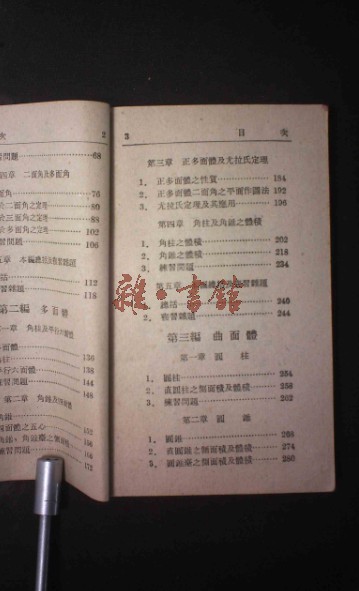 次 2
習問題 68
四章 二面角及多面角
面角 76
二面角之定理 80
三面角之定理 88
多面角之定理 102
習問題 106
五章 本編總括及複習雜題
括 112
雜題 118
第二編 多面體
一章 角柱及平行六面體
角柱 130
行六面體 138
習問題 144
第二章 角錐及 148
角錐
四面體之五心 156
練習問題 166
172
3 目 次
第三章 正多面體及尤拉氏定理
1. 正多面體之性質 184
2. 正多面體二面角之平面作圖法 192
3. 尤拉氏定理及其應用 196
第四章 角柱及角錐之體積
1. 角柱之體積 202
2. 角錐之體積 218
3. 練習問題 234
第五章
1. 總括 240
2. 複習雜題 244
雜·書館
第三編 曲面體
第一章 圓 柱
1. 圓柱 254
2. 直圓柱之側面積及體積 258
3. 練習問題 262
第二章 圓 錐
1. 圓錐 268
2. 直圓錐之側面積及體積 274
3. 圓錐臺之側面積及體積 280